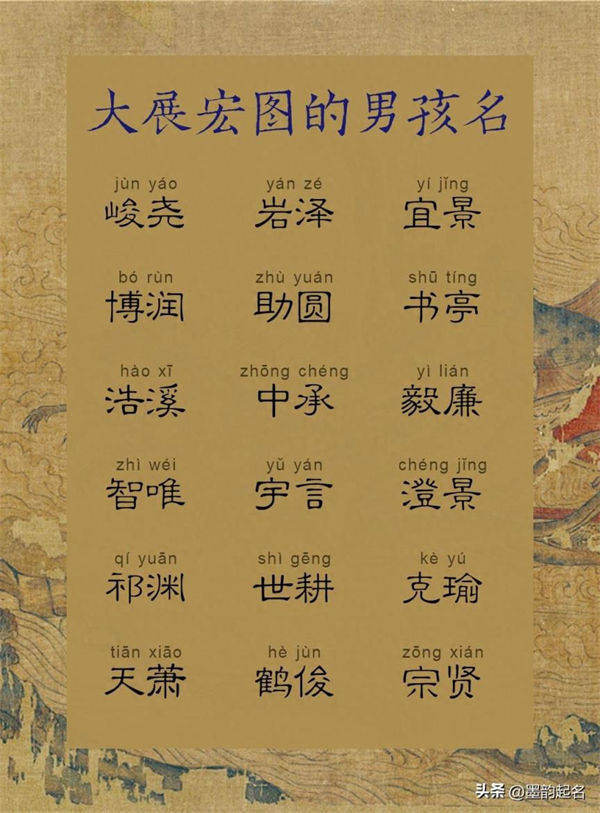 大展宏图的男孩名
jùn yáo yán zé yí jǐng
峻尧 岩泽 宜景
bó rùn zhù yuán shū tíng
博润 助圆 书亭
hào xī zhōng chéng yì lián
浩溪 中承 毅廉
zhì wéi yǔ yán chéng jǐng
智唯 宇言 澄景
qí yuān shì gēng kè yú
祁渊 世耕 克瑜
tiān xiāo hè jùn zōng xián
天萧 鹤俊 宗贤
头条 @墨韵起名